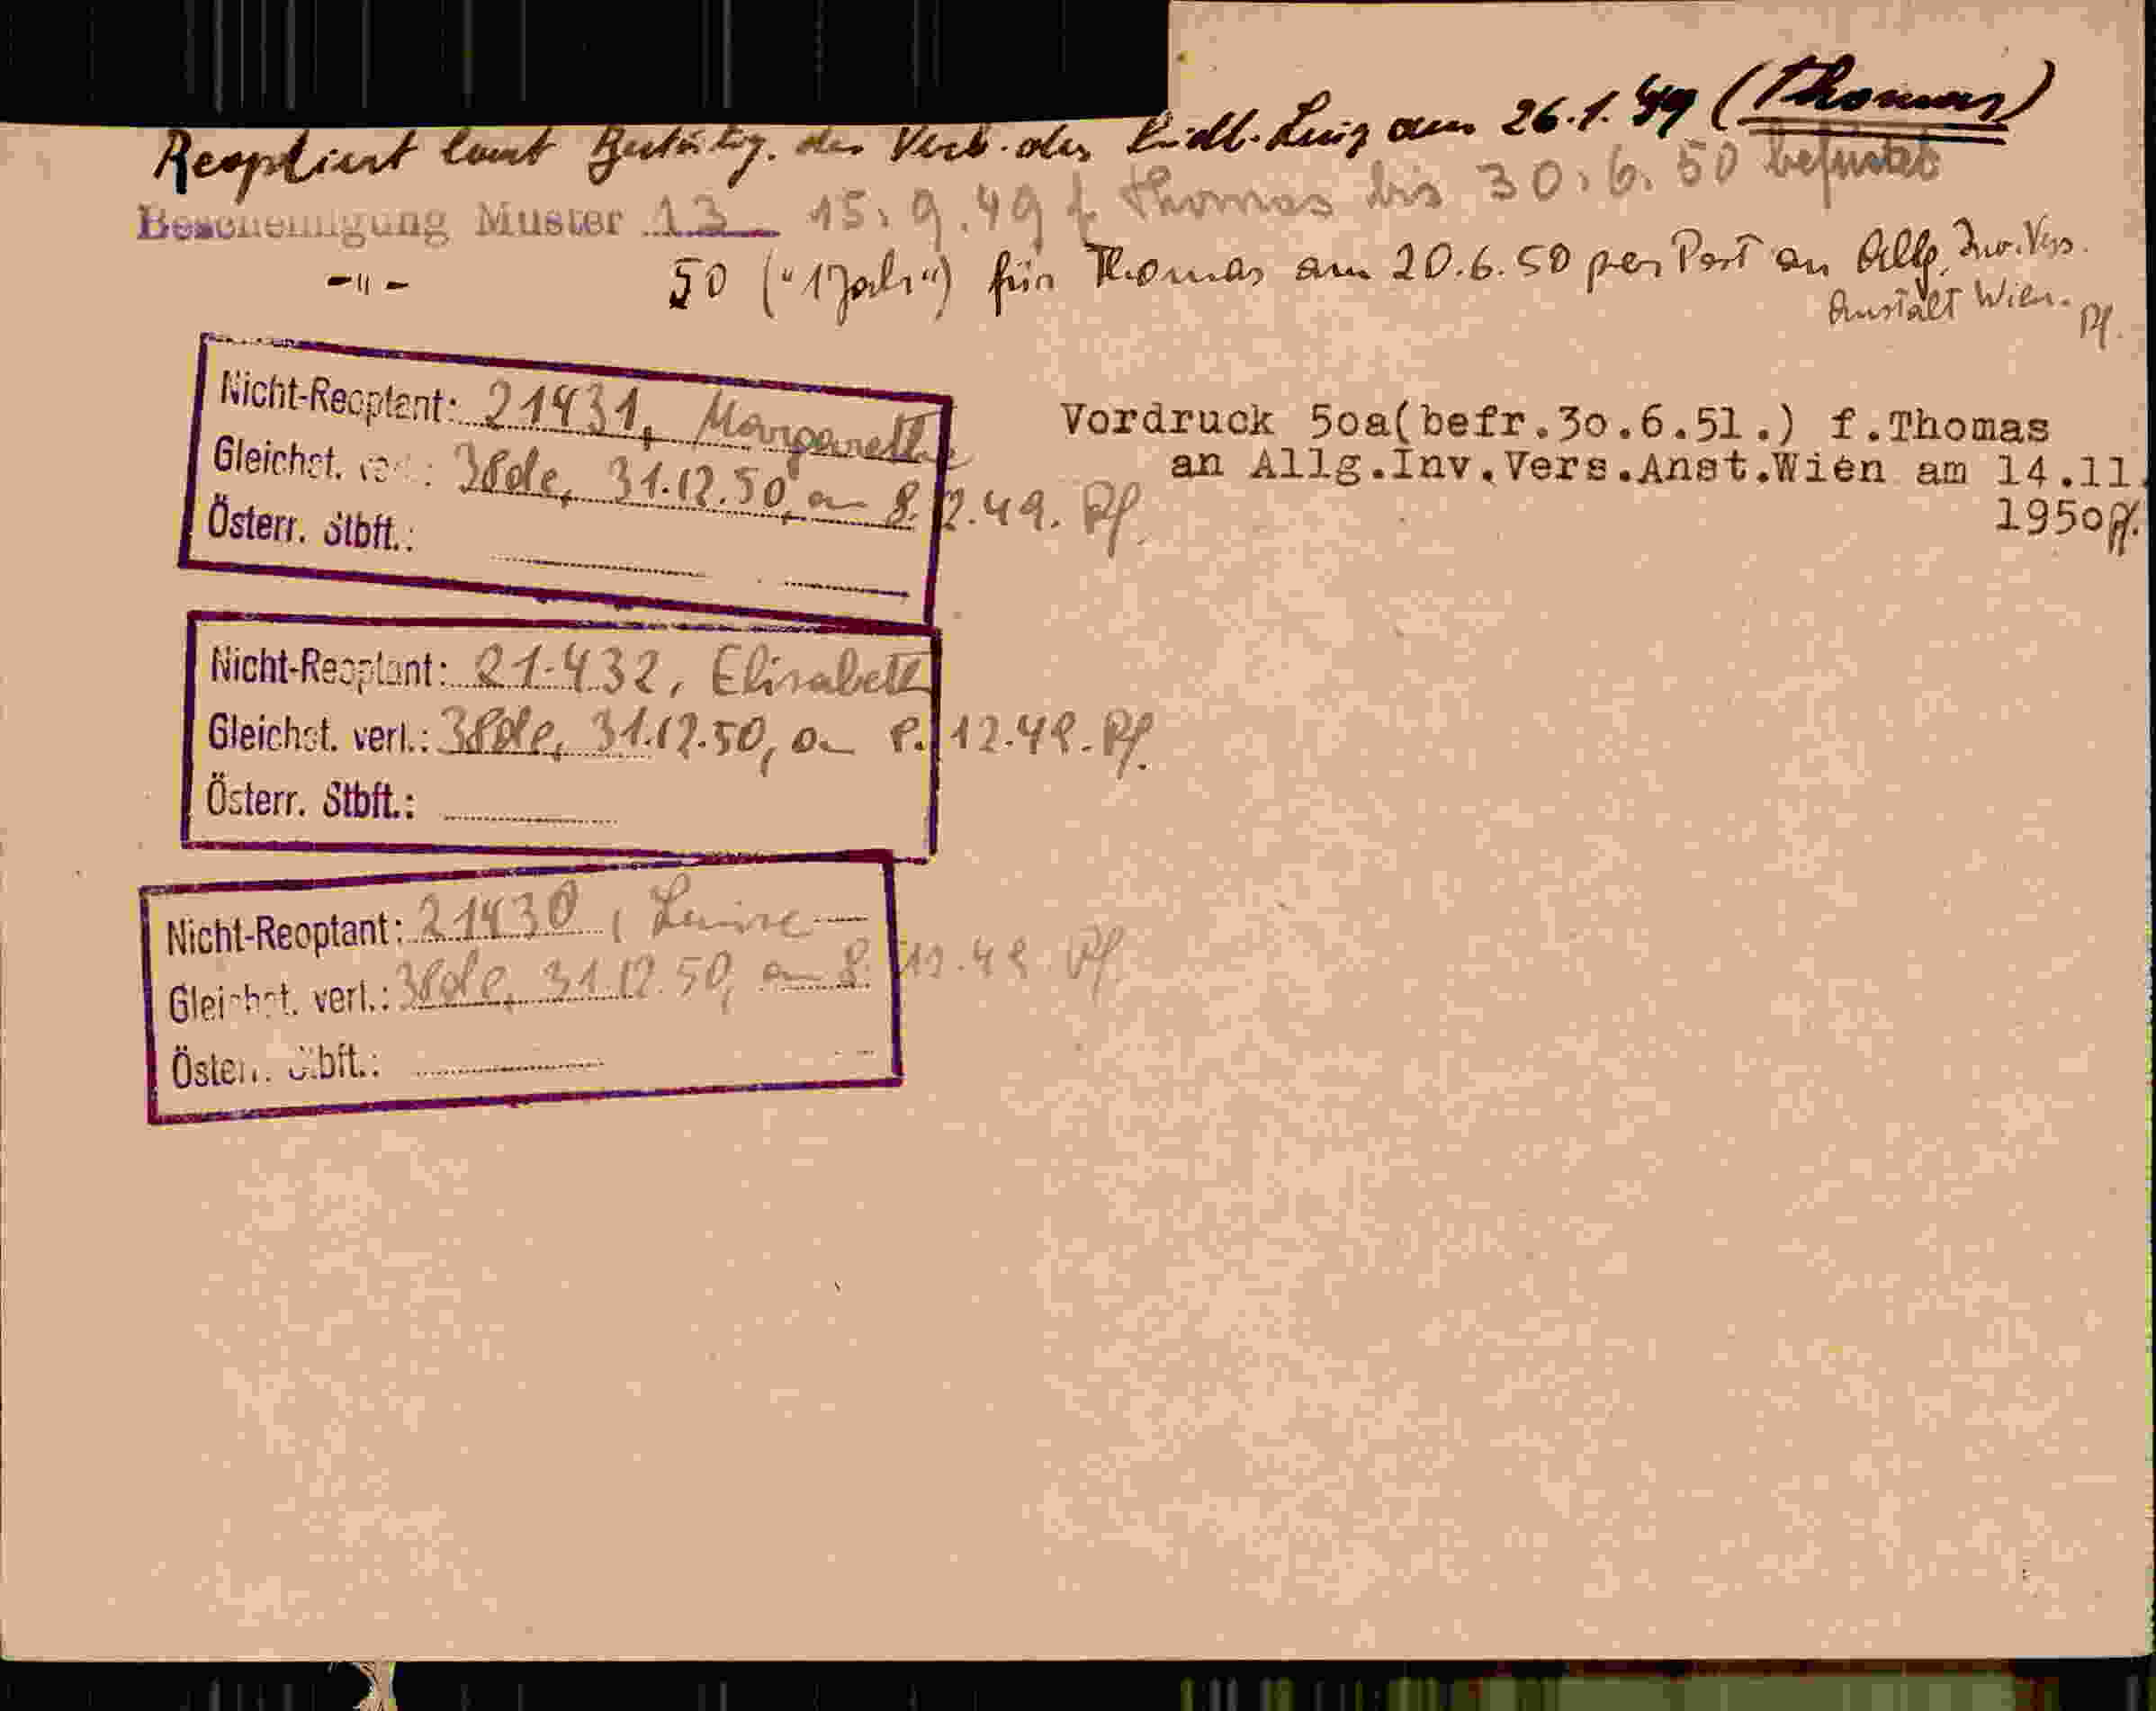 Reoptiert laut Bestätig. des Verb. der Südt. Linz am 26.1.49 (Thomas)
Bescheinigung Muster 13 15.9.49 f. Thomas bis 30.6.50 befristet
-"- 50 ("1 Jahr") für Thomas am 20.6.50 per Post an Allg. Inv. Vers.
Anstalt Wien. Pf.
Nicht-Reoptant: 21431, Margarethe
Gleichst. : 31.12.50, am 8.12.49. Pf.
Österr. Stbft.:
Vordruck 5oa(befr.3o.6.51.) f.Thomas
an Allg.Inv.Vers.Anst.Wien am 14.11.
195o Pf.
Nicht-Reoptant: 21.432, Elisabeth
Gleichst. verl.: 31.12.50, am 8.12.49. Pf.
Österr. Stbft.:
Nicht-Reoptant: 21430, Luise
Gleichst. verl.: 31.12.50, am 8.12.49. Pf.
Österr. Stbft.: